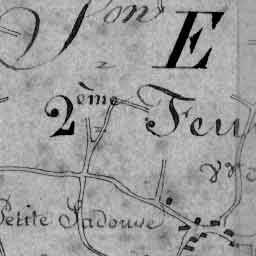 S.on E
2ème Feu
Petite Jadouse